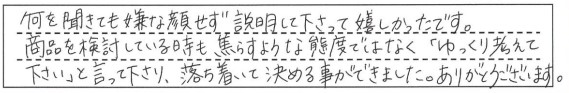 何を聞きても嫌な顔せず説明して下さって嬉しかったです。
商品を検討している時も焦らすような態度ではなく「ゆっくり考えて
下さい」と言って下さり、落ち着いて決める事ができました。ありがとうございます。